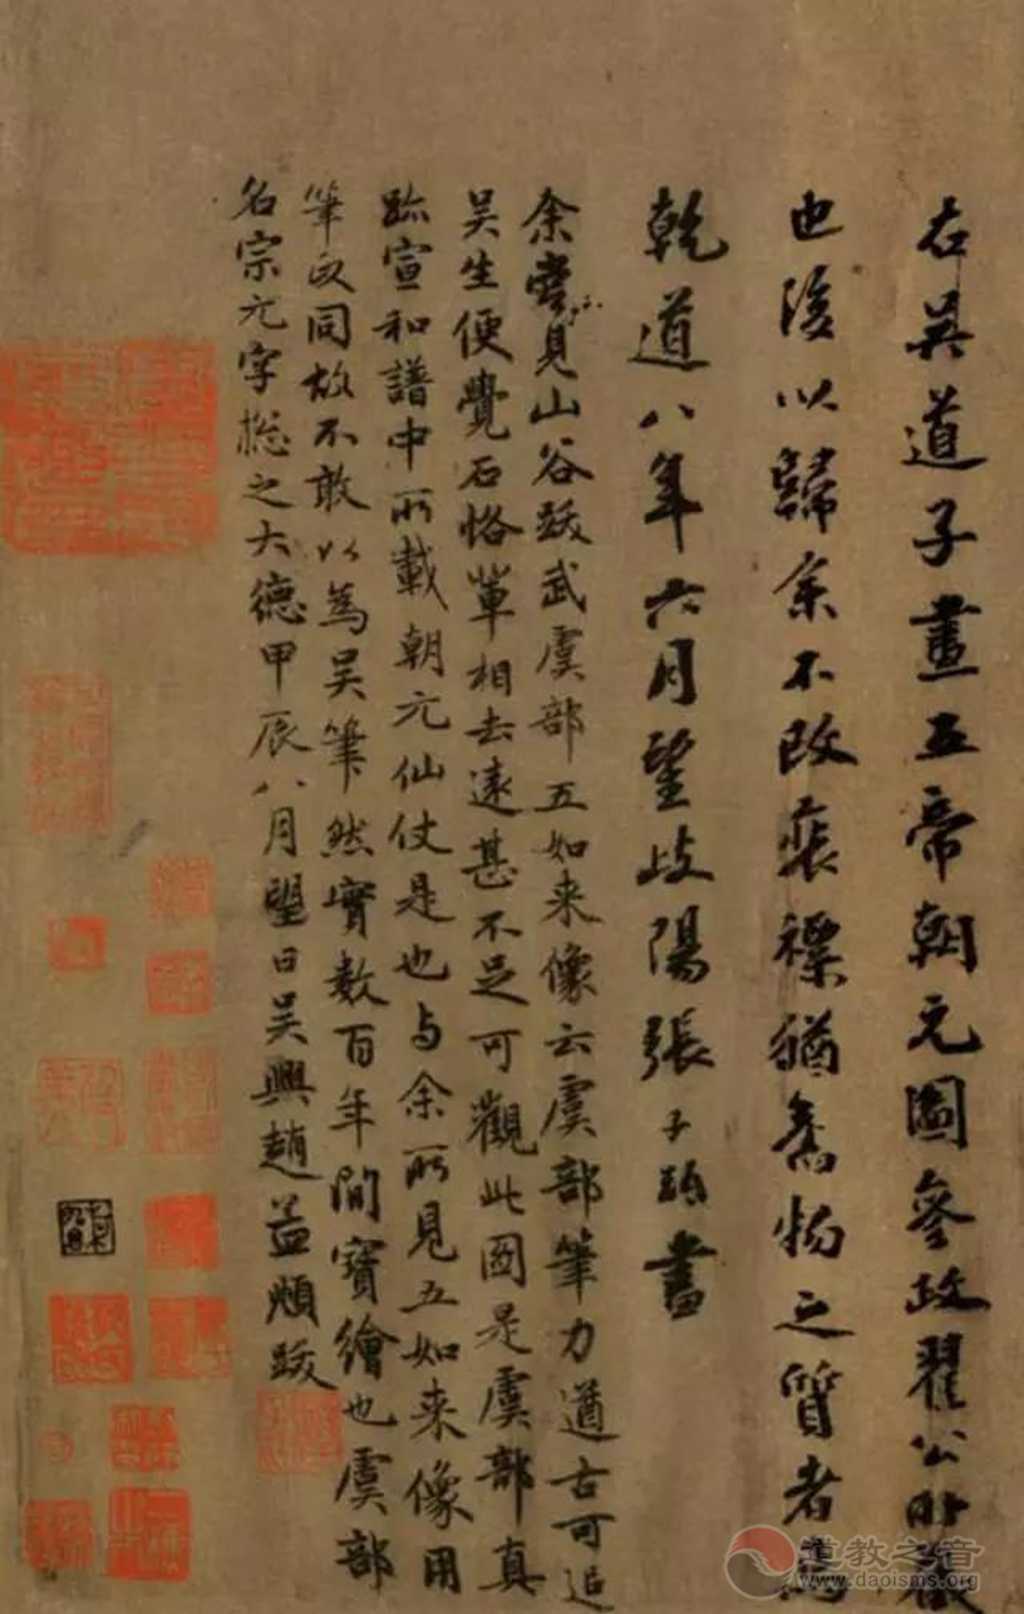 右吳道子畫五帝朝元圖叅政翟公所藏
也後以歸余不改裝褾猶舊物之質者
乾道八年六月望歧陽張子珌書
余嘗見山谷跋武虞部五如来像云虞部筆力遒古可追
吴生便覺石恪軰相去遠甚不足可觀此図是虞部真
跡宣和譜中所載朝元仙仗是也与余所見五如来像用
筆政同故不敢以為吴筆然實数百年間寶繪也虞部
名宗元字揔之大德甲辰八月望日吴興趙孟頫跋
道教之音
www.daoisms.org